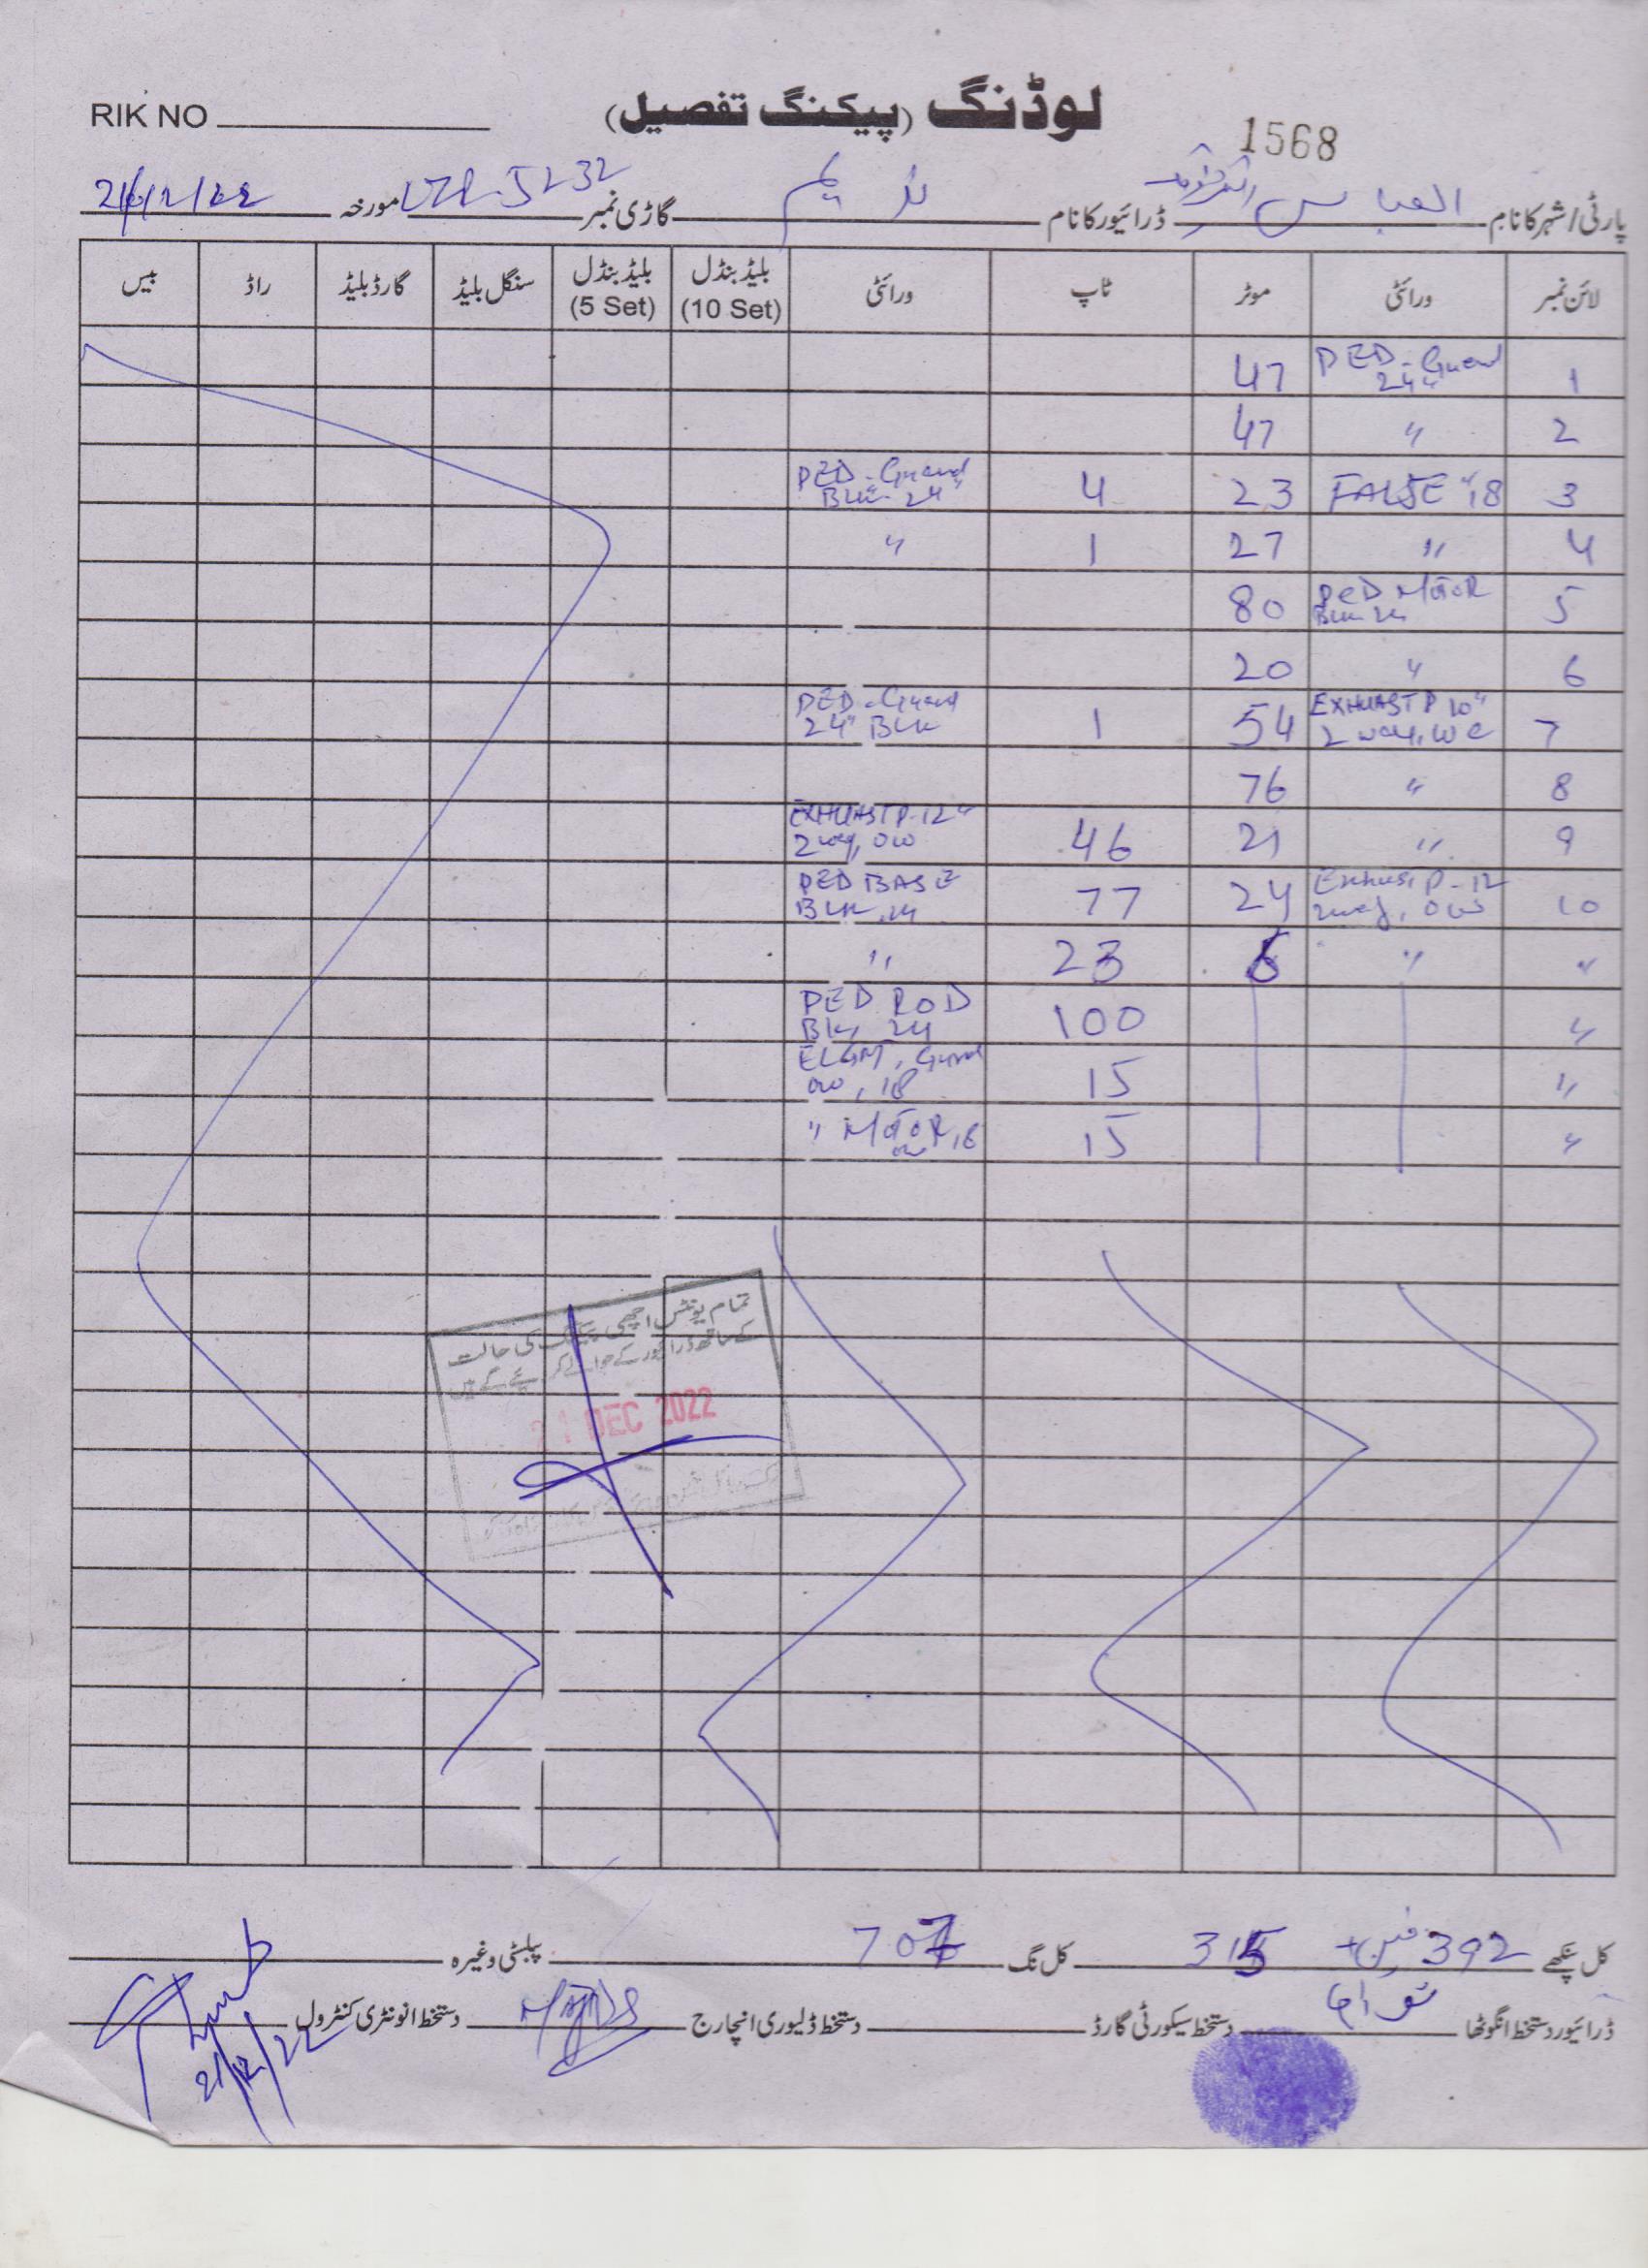 RIK NO
لوڈنگ (پیکنگ تفصیل)
1568
پارٹی/شہر کا نام العباس
ڈرائیور کا نام ندیم
گاڑی نمبر 5232
مورخہ 21/12/22
لائن نمبر ورائٹی موٹر ٹاپ ورائٹی بلیڈ بنڈل (10 Set) بلیڈ بنڈل (5 Set) سنگل بلیڈ گارڈ بلیڈ راڈ بیس
1 PED-Guard 24" 47
2 " 47
3 FALSE "18 23 4 PED-Guard Blk 24"
4 " 27 1 "
5 PED MOTOR Blk 24 80
6 " 20
7 EXHUAST P 10" 2 way, WC 54 1 PED-Guard 24" BLK
8 " 76
9 " 21 46 EXHUAST P-12" 2 way, OW
10 Exhust P-12 2way, OW 24 77 PED BASE BLK 24
" " 6 23 "
" 100 PED ROD Blk 24
" 15 ELGNT, Guard OW, 18
" 15 " MOTOR 18 OW
تمام یونٹس اچھی پیکنگ کی حالت
کے ساتھ ڈرائیور کے حوالے کر دیئے گئے ہیں
21 DEC 2022
کل پنکھے 392 فین + 315
کل نگ 707
پبلسٹی وغیرہ
ڈرائیور دستخط انگوٹھا
دستخط سیکورٹی گارڈ
دستخط ڈلیوری انچارج
دستخط انونٹری کنٹرول
21/12/22